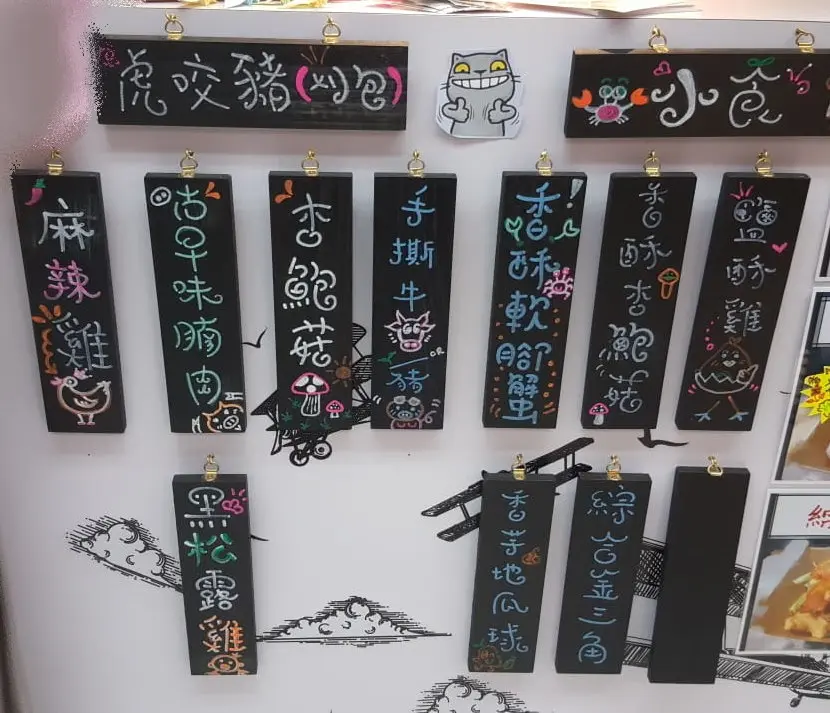 虎咬豬(刈包)
小食
麻辣雞
古早味腩肉
杏鮑菇
手撕牛or豬
香酥軟腳蟹
香酥杏鮑菇
鹽酥雞
黑松露雞
香芋地瓜球
綜合金三角